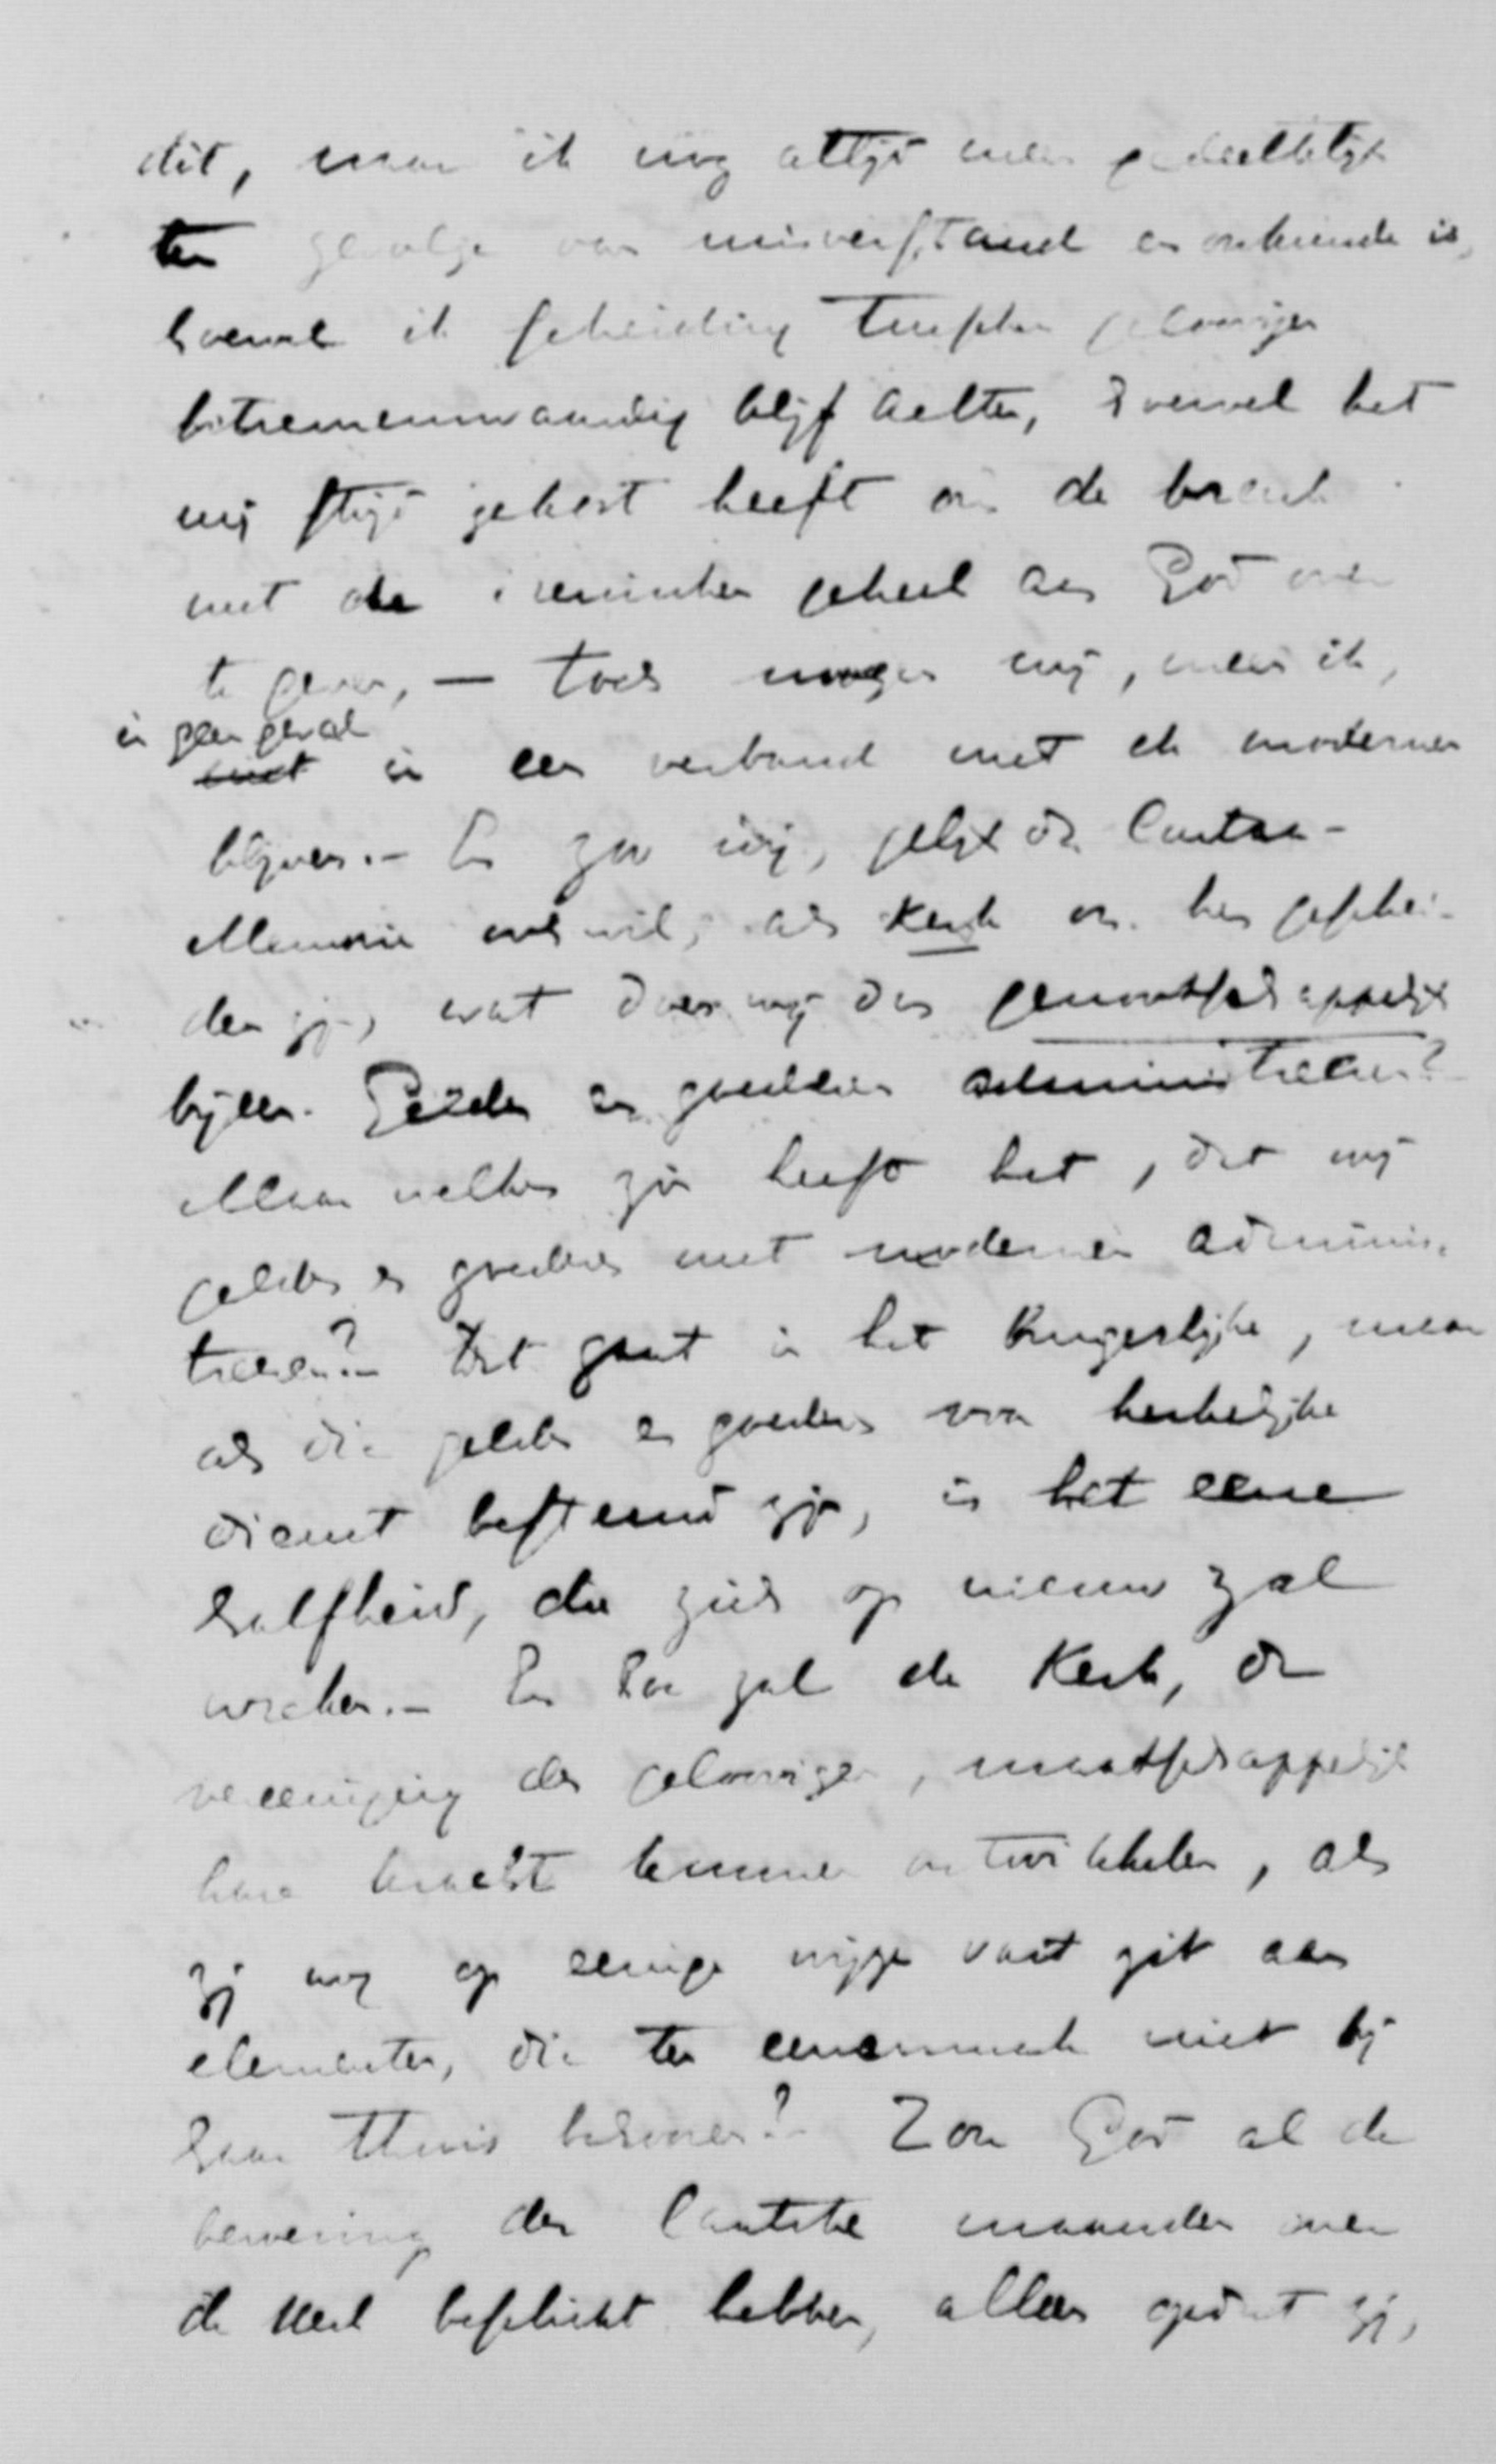 dit, maar ik nog altijd meen gedeeltelijk
ten gevolge van misverstand en onkunde is,
hoewel ik scheiding tusschen geloovigen
hoewel het
mij strijd gekost heeft om de breuk
met de irenischen geheel aan God over
te geven, — toch mogen wij, meen ik,
in geen geval
niet in een verband met de modernen
blijven. — En zoo wij, gelijk de Contra-
Memorie ook wil, als Kerk van hen geschei-
den zijn, wat doen wij dan genootschappelijk
bijeen. Gelden en goederen administreeren?
Maar welken zin heeft het, dat wij
gelden en goederen met modernen adminis-
treeren? — Dat gaat in het burgerlijke, maar
als die gelden en goederen voor kerkelijke
dienst bestemd zijn, is het eene
halfheid, die zich op nieuw zal
wreken. — En hoe zal de Kerk, de
vereeniging der geloovigen, maatschappelijk
hare kracht kunnen ontwikkelen, als
zij nog op eenige wijze vast zit aan
elementen, die ten eenenmale niet bij
haar thuis behooren? — Zou God al de
beweging der laatste maanden over
de Kerk beschikt hebben, alleen opdat zij,